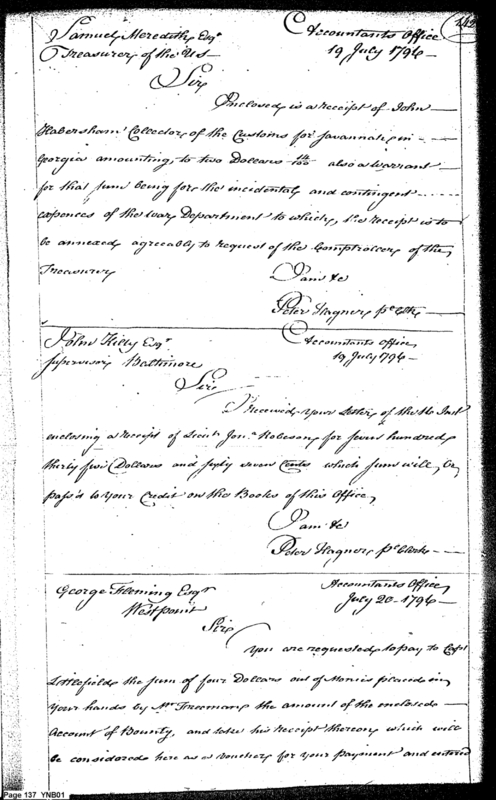 Samuel Meredith Esqr
Treasurer of the US
Accountants Office
19 July 1796
Sir
Inclosed is a receipt of John
Habersham Collector of the Customs for Savannah in
Georgia amounting to two Dollars also a Warrant
for that sum being for the incidental and contingent
expences of the war Department to which the receipt is to
be annexed agreeably to request of the Comptroller of the
Treasury
I am &c
Peter Hagner pl Clk
John Killy Esqr
supervisor Baltimore
Accountants Office
19 July 1796
Sir
I received your Letter of the 16 Inst
enclosing a receipt of Lieut Jona Robeson for seven hundred
thirty five Dollars and sixty seven Cents which sum will be
pass'd to your Credit on the Books of this Office
I am &c
Peter Hagner pl Clerk
George Fleming Esqr
Westpoint
Accountants Office
July 20 1796
Sir
You are requested to pay to Capt
Littlefield the sum of four Dollars out of Monies placed in
your hands by Mr Freeman the amount of the enclosed
Account of Bounty, and take his receipt thereon which will
be considered here as a voucher for your payment and entered
Page 137 YNB01